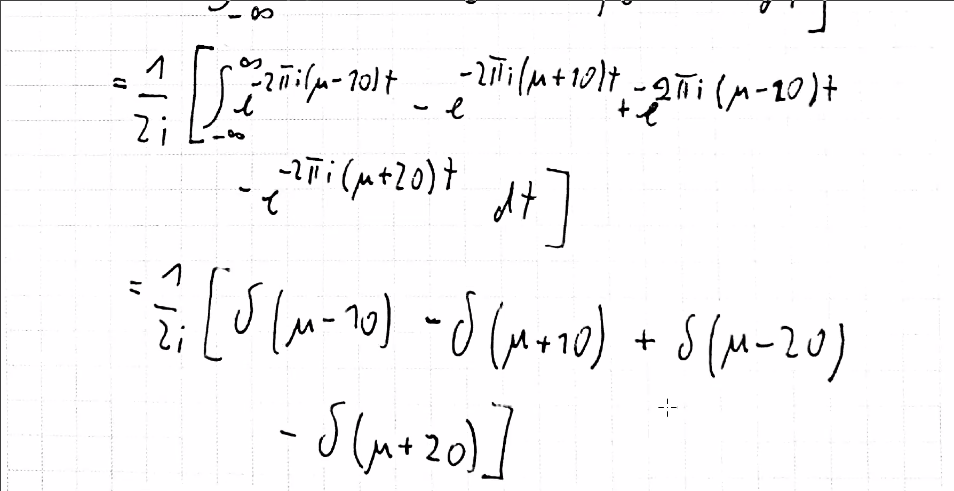 -∞
= 1/2i [ ∫_{-∞}^{∞} e^{-2πi(μ-10)t} - e^{-2πi(μ+10)t} + e^{-2πi(μ-20)t}
- e^{-2πi(μ+20)t} dt ]
= 1/2i [ δ(μ-10) - δ(μ+10) + δ(μ-20)
- δ(μ+20) ]